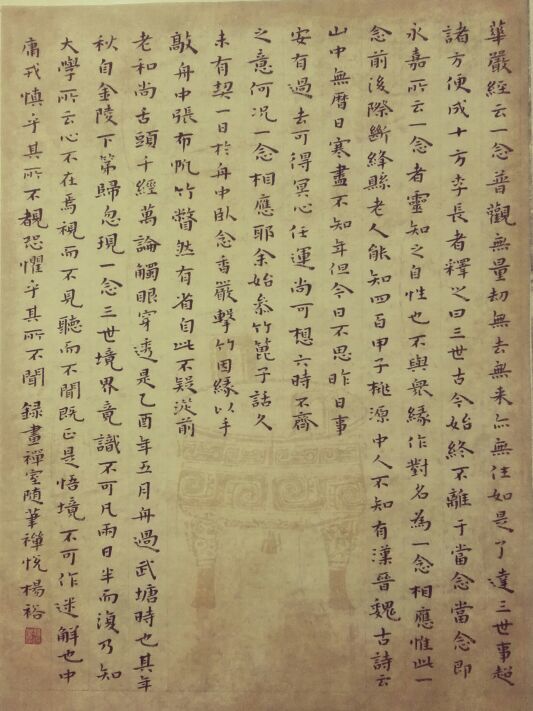 華嚴經云一念普觀無量劫無去無來亦無住如是了達三世事超
諸方便成十方李長者釋之曰三世古今始終不離于當念當念即
永嘉所云一念者靈知之自性也不與眾緣作對名為一念相應惟此一
念前後際斷絳縣老人能知四百甲子桃源中人不知有漢晉魏古詩云
山中無曆日寒盡不知年但今日不思昨日事
安有過去可得冥心任運尚可想六時不齊
之意何况一念相應耶余始參竹篦子話久
未有契一日於舟中臥念香嚴擊竹因緣以手
敲舟中張布帆竹瞥然有省自此不疑從前
老和尚舌頭千經萬論觸眼穿透是乙酉年五月舟過武塘時也其年
秋自金陵下第歸忽現一念三世境界意識不可凡兩日半而復乃知
大學所云心不在焉視而不見聽而不聞既正是悟境不可作迷解也中
庸戒慎乎其所不覩恐懼乎其所不聞 錄畫禪室隨筆禪悅 楊裕